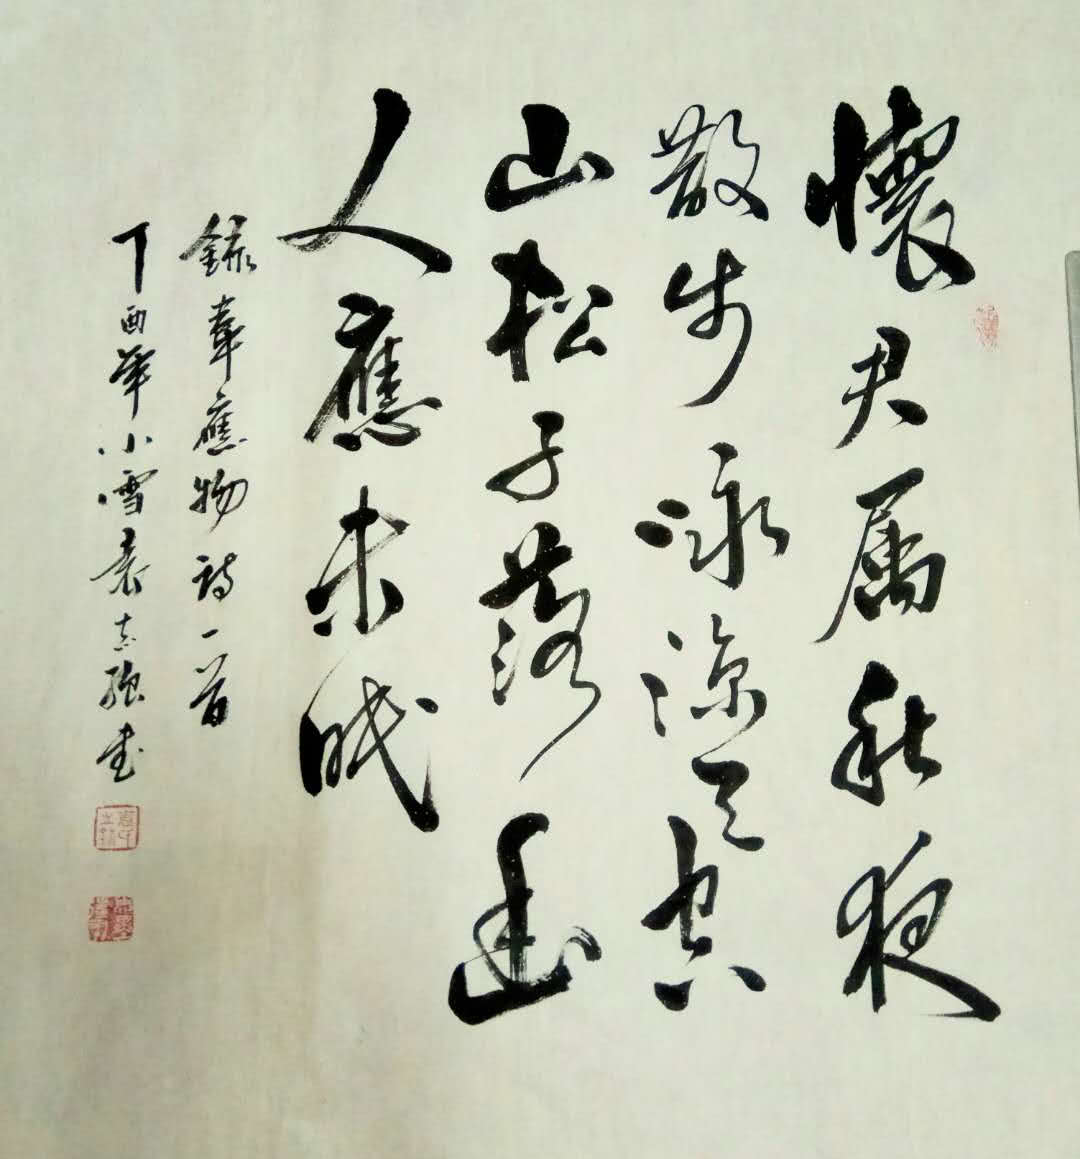 懷君属秋夜
散步詠涼天空
山松子落幽
人應未眠
錄韋應物詩一首
丁酉年小雪袁志強書